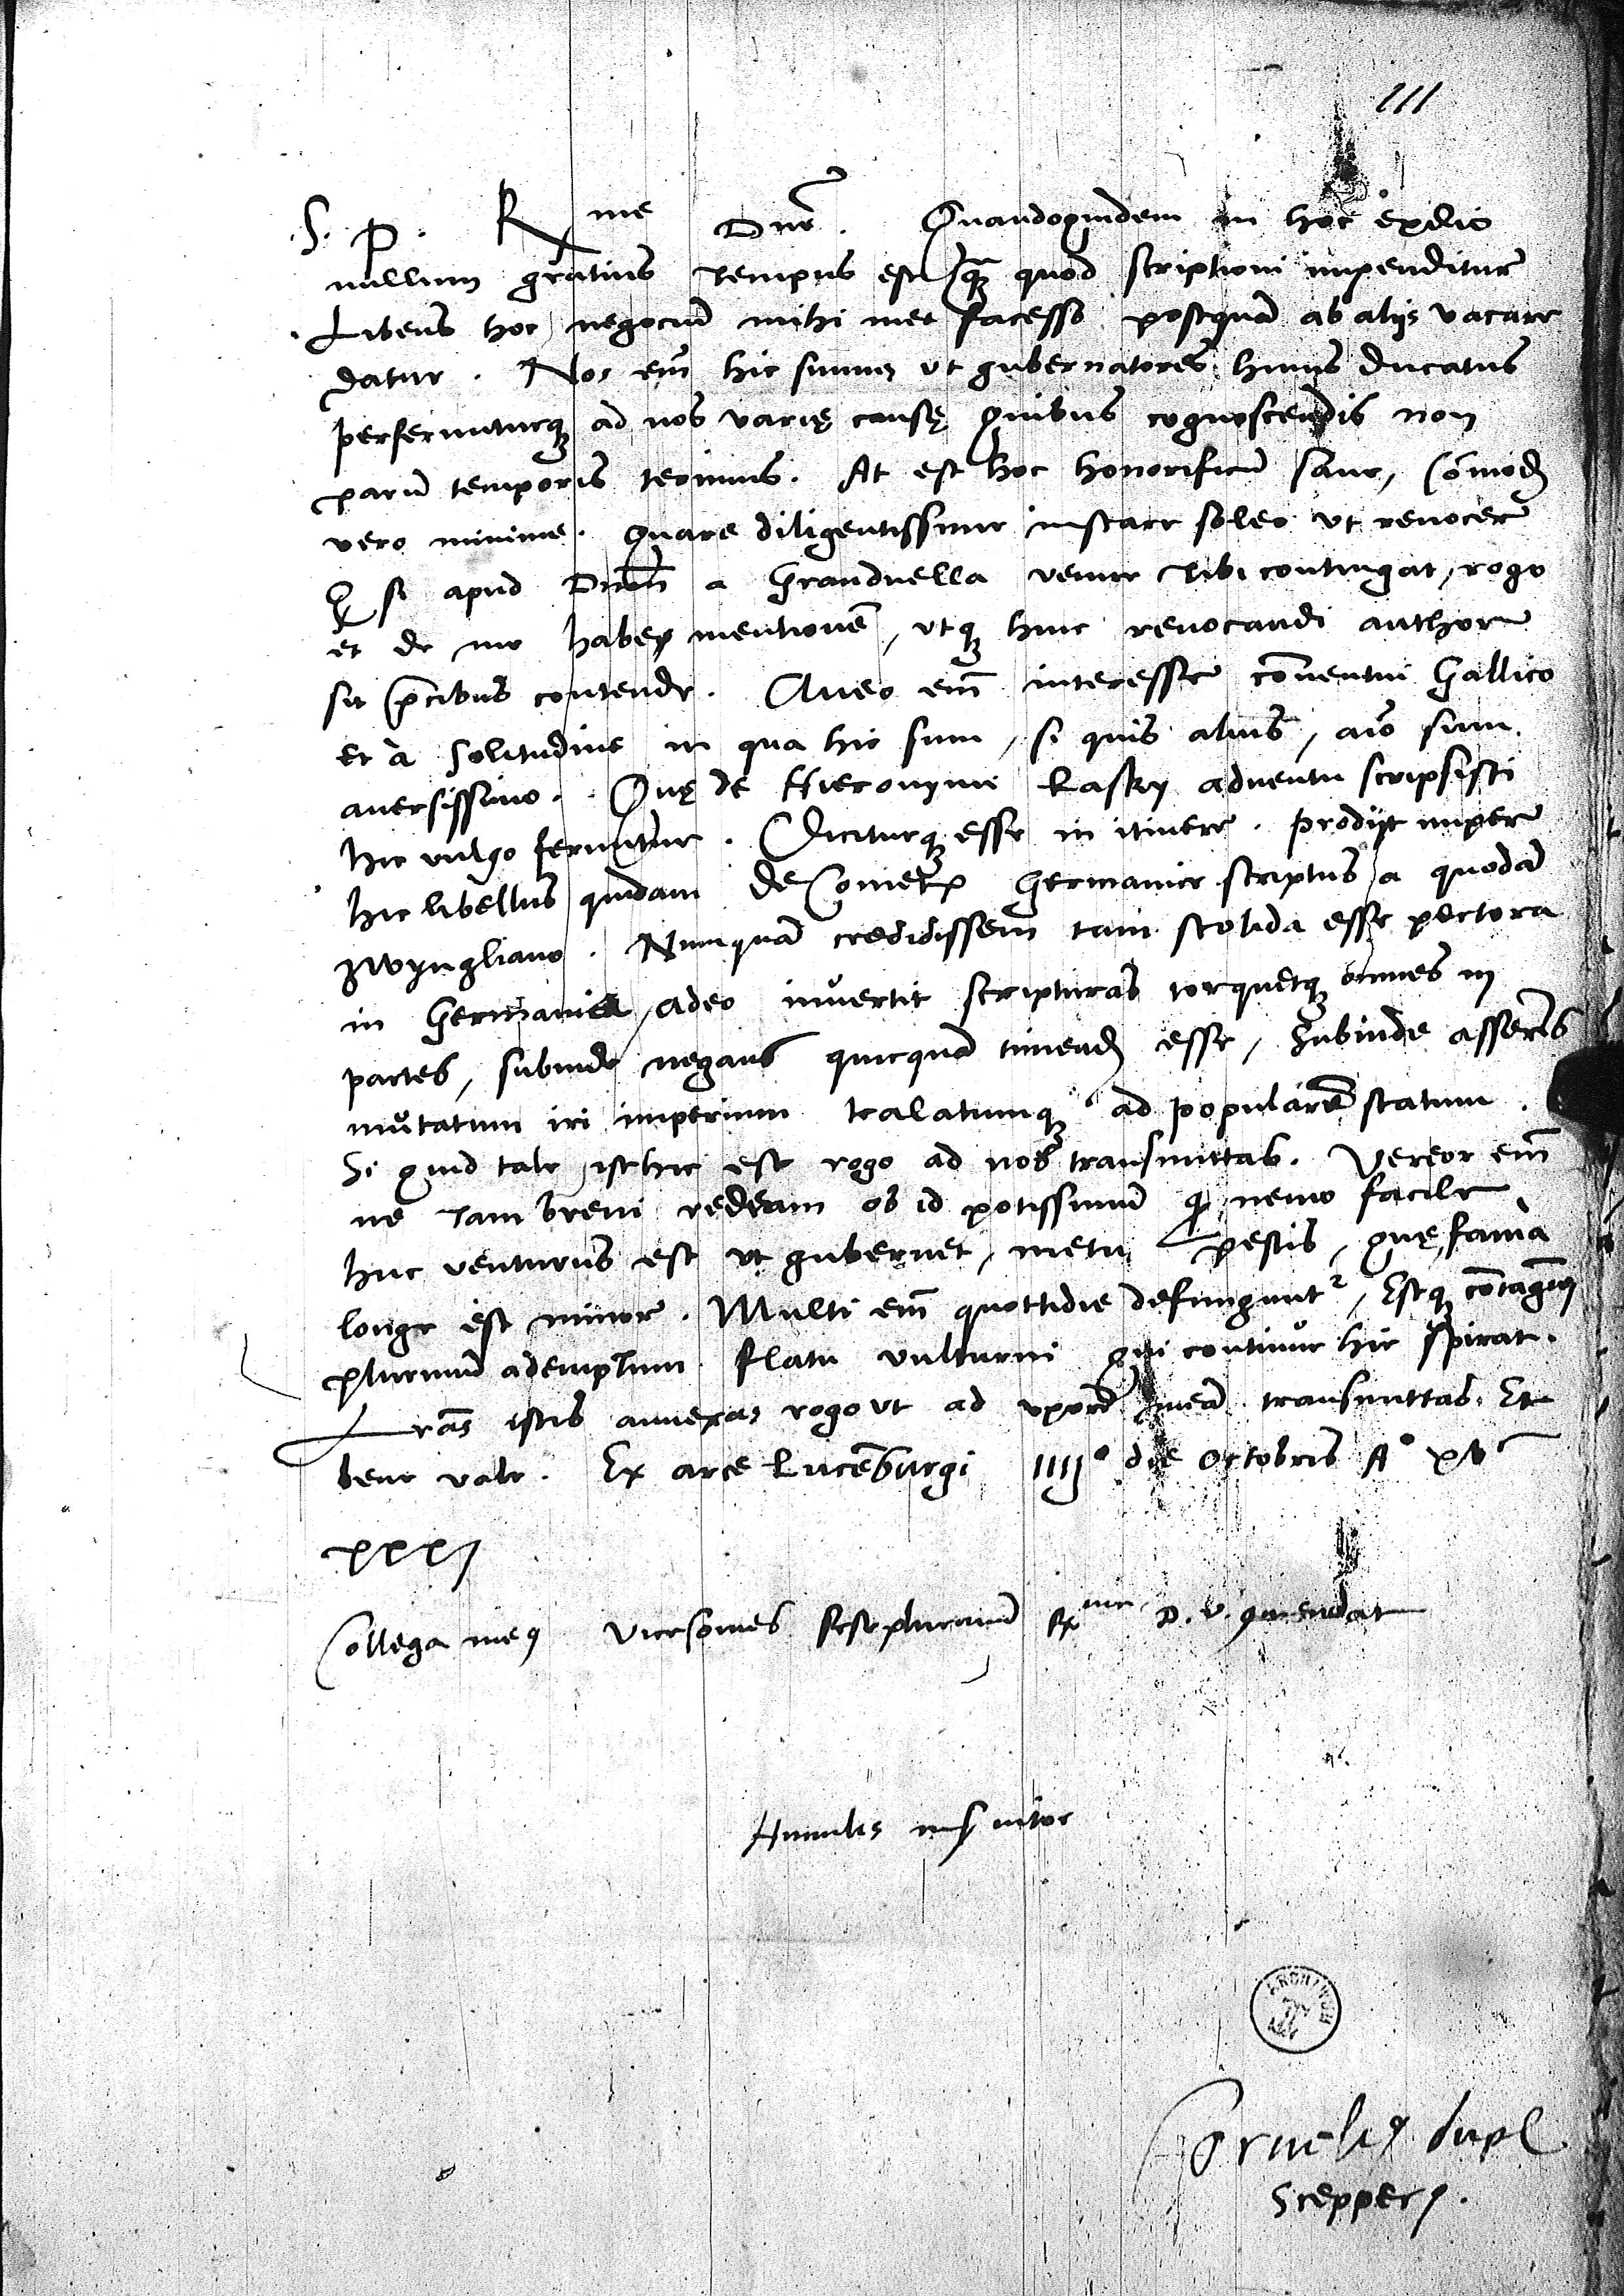 111
S. P. Rme Dne. Quandoquidem in hoc exilio
nullum gratius tempus est q̃ quod scriptioni impenditur
Libens hoc negociũ mihi met facesso postquã ab alijs vacare
datur. Nos em̃ hic sumus vt gubernatores huius Ducatus
perferunturq; ad nos varię causę quibus cognoscendis non
parũ temporis terimus. At est hoc honorificũ sane, Cõmodũ
vero minime. Quare diligentissime instare soleo vt reuocer
Q si apud Dnm̃ a Granduella venire tibi contingat, rogo
et de me habeas mentionẽ, vtq; hinc reuocandi author
sit p̃cibus contende. Aueo em̃ interesse cõuentui Gallico
et à solitudine in qua hic sum, si quis alius, aĩo sum
auersissimo. Quę de Hieronymi Lasky aduentu scripsisti
hic vulgo feruntur. Diciturq; esse in itinere. Prodijt nuper
hic libellus quidam De Cometa Germanice scriptus a quodã
zwyngliano. Numquã credidissem tam stolida esse pectora
in Germania, adeo inuertit scripturas torquetq; omnes in
partes, subinde negans quicquã timendũ esse, Subinde asserẽs
mutatum iri imperium tralatumq; ad popularẽ statum.
Si quid tale isthic est rogo ad nos transmittas. Vereor em̃
ne tam breui redeam ob id potissimũ q nemo facile
huc venturus est vt gubernet, metu pestis, quę fama
longe est minor. Multi em̃ quottidie defungunt², Estq; cõtagiũ
plurimũ ademptum flatu vulturni qui continue hic spirat.
Lr̃as istis annexas rogo vt ad vxorẽ meã transmittas. Et
bene vale. Ex arce Lucẽburgi IIIJ° die Octobris A° XVc
XXXJ
Collega meus Vicecomes sese plurimũ Rme D. V. cõmendat
Humilis seruitor
Cornelius dupl
Scepperus.